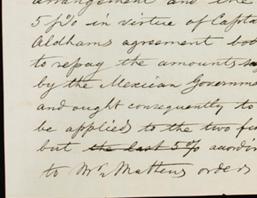 arrangement and the
5 p% in virtue of Capta
Aldhams agreement bot
to repay the amounts
by the Mexican Governm
and ought consequently to
be applied to the two fu
but the last 5% acordin
to Mr Mathews orders